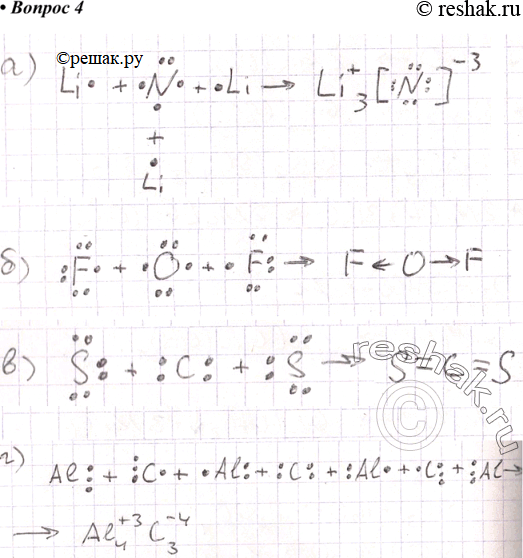 • Вопрос 4
© reshak.ru
©решак.ру
а) Li• + •N• + •Li → Li⁺₃[:N:]⁻³
+
Li
б) :F• + •O• + •F: → F ← O → F
в) S: + :C: + :S → S=C=S
reshak.ru
©
г) Al: + :C• + •Al: + :C: + :Al• + •C: + :Al →
→ Al₄⁺³C₃⁻⁴